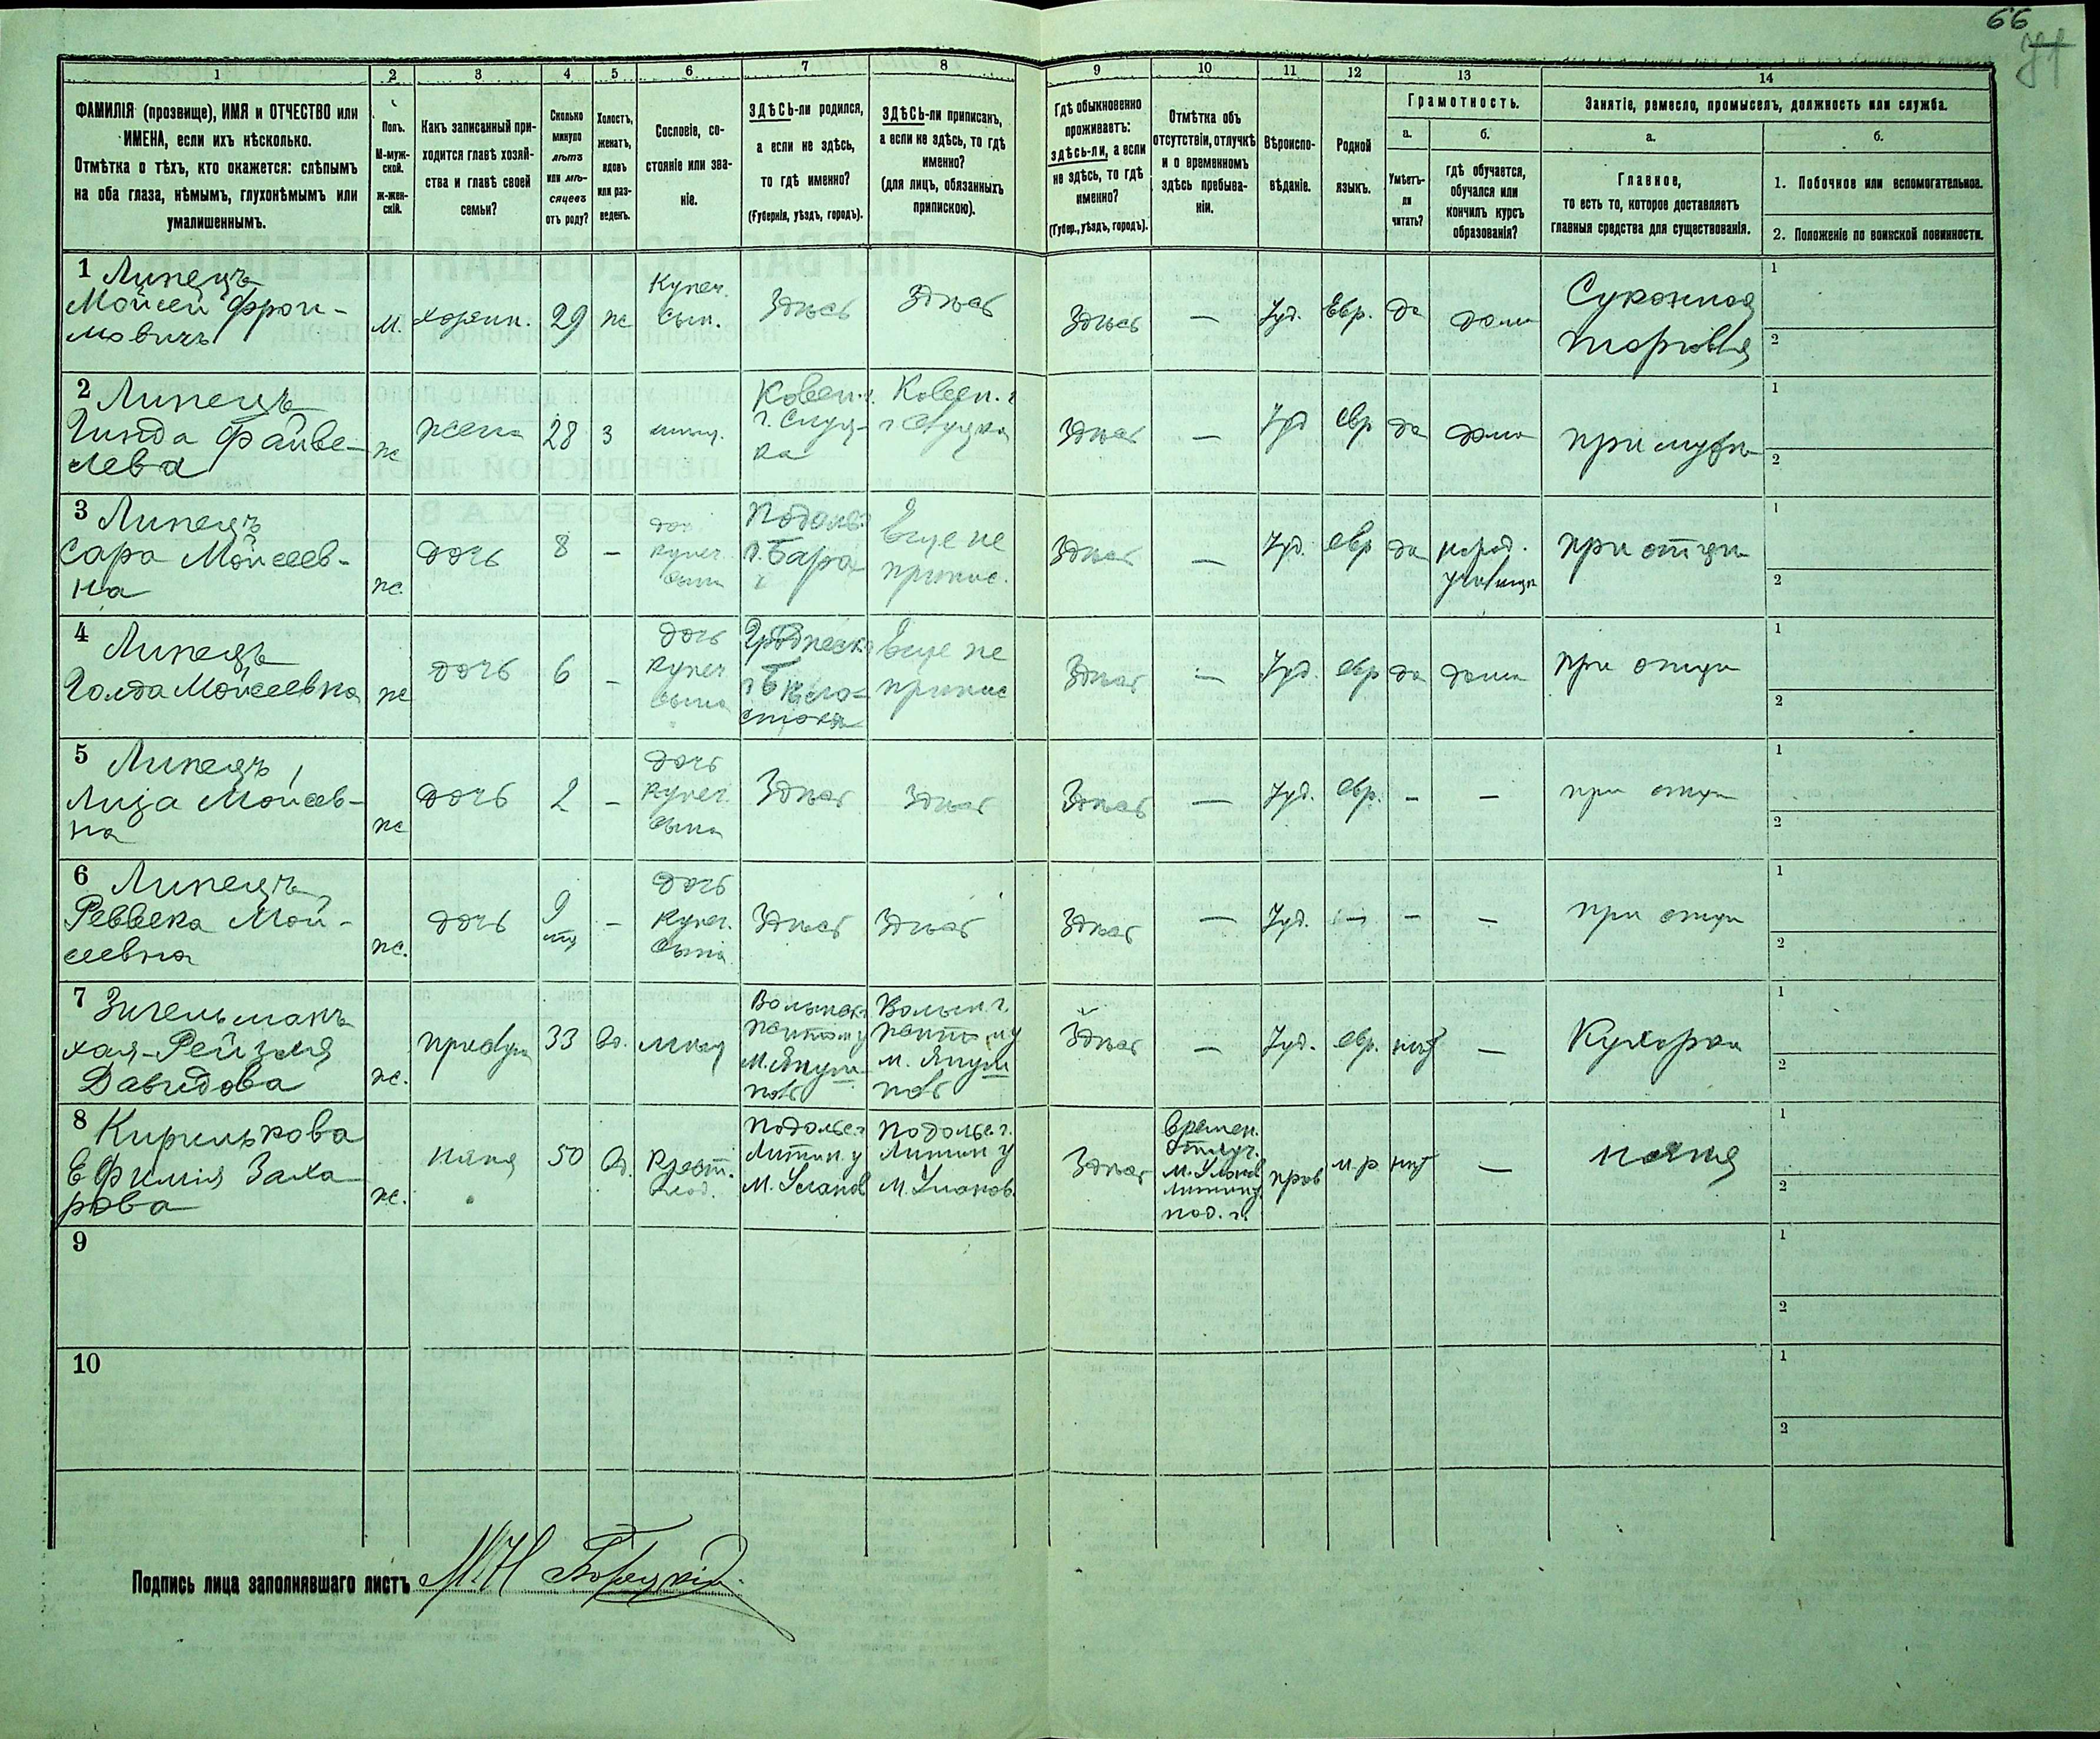 66
71
1
2
3
4
5
6
7
8
9
10
11
12
13
14
ФАМИЛІЯ (прозвище), ИМЯ и ОТЧЕСТВО или
ИМЕНА, если ихъ нѣсколько.
Отмѣтка о тѣхъ, кто окажется: слѣпымъ
на оба глаза, нѣмымъ, глухонѣмымъ или
умалишеннымъ.
Полъ.
М-муж-
ской.
ж-жен-
скій.
Какъ записанный при-
ходится главѣ хозяй-
ства и главѣ своей
семьи?
Сколько
минуло
лѣтъ
или мѣ-
сяцевъ
отъ роду?
Холостъ,
женатъ,
вдовъ
или раз-
веденъ.
Сословіе, со-
стояніе или зва-
ніе.
ЗДѢСЬ-ли родился,
а если не здѣсь,
то гдѣ именно?
(Губернія, уѣздъ, городъ).
ЗДѢСЬ-ли приписанъ,
а если не здѣсь, то гдѣ
именно?
(для лицъ, обязанныхъ
припискою).
Гдѣ обыкновенно
проживаетъ:
здѣсь-ли, а если
не здѣсь, то гдѣ
именно?
(Губер., уѣздъ, городъ).
Отмѣтка объ
отсутствіи, отлучкѣ
и о временномъ
здѣсь пребыва-
ніи.
Вѣроиспо-
вѣданіе.
Родной
языкъ.
Грамотность.
а.
б.
Умѣетъ-
ли
читать?
гдѣ обучается,
обучался или
кончилъ курсъ
образованія?
Занятіе, ремесло, промыселъ, должность или служба.
а.
б.
Главное,
то есть то, которое доставляетъ
главныя средства для существованія.
1. Побочное или вспомогательное.
2. Положеніе по воинской повинности.
1 Липецъ
Мойсей Фрои-
мовичъ
м.
хозяин.
29
ж
Купеч.
сын.
Здѣсь
Здѣсь
Здѣсь
—
Іуд.
Евр.
да
дома
Суконная
торговля
1
2
2 Липецъ
Гинда Файве-
лева
ж
жена
28
з
Ковен. г.
Ковен. г
Здѣсь
—
Іуд
евр
да
дома
при мужѣ
1
2
3 Липецъ
Сара Мойсеев-
на
ж.
дочь
8
—
доч.
купеч.
сына
Подоль.
г. Бара
Еще не
припис.
Здѣсь
—
Іуд.
евр
да
народ.
училище
при отцѣ
1
2
4 Липецъ
Голда Мойсеевна
ж
дочь
6
—
дочь
купеч
сына
Гродненск.
г. Бѣло-
стокѣ
Еще не
припис
Здѣсь
—
Іуд.
евр
да
дома
при отцѣ
1
2
5 Липецъ
Лиза Мойсеев-
на
ж
дочь
2
—
дочь
купеч.
сына
Здѣсь
Здѣсь
Здѣсь
—
Іуд.
евр.
—
—
при отцѣ
1
2
6 Липецъ
Реввека Мой-
сеевна
ж.
дочь
9
мѣс
—
дочь
купеч.
сына
Здѣсь
Здѣсь
Здѣсь
—
Іуд.
—
—
—
при отцѣ
1
2
7 Зигельманъ
Хая-Рейзля
Давидова
ж.
прислуга
33
вд.
мѣщ
Волынск.
М. Януш-
поль
Волын. г.
м. Януш
поль
Здѣсь
—
Іуд.
евр.
нѣт
—
Кухарка
1
2
8 Кирилькова
Ефимія Заха
рова
ж.
няня
50
вд.
Крест.
Подольс. г
Литин. у
М. Уланов
Подольс. г.
Литин у
М. Уланов.
Здѣсь
Времен.
отлуч.
М. Уланов
Литин. у
под. г.
прав
м.р
нѣт
—
няня
1
2
9
1
2
10
1
2
Подпись лица заполнявшаго листъ